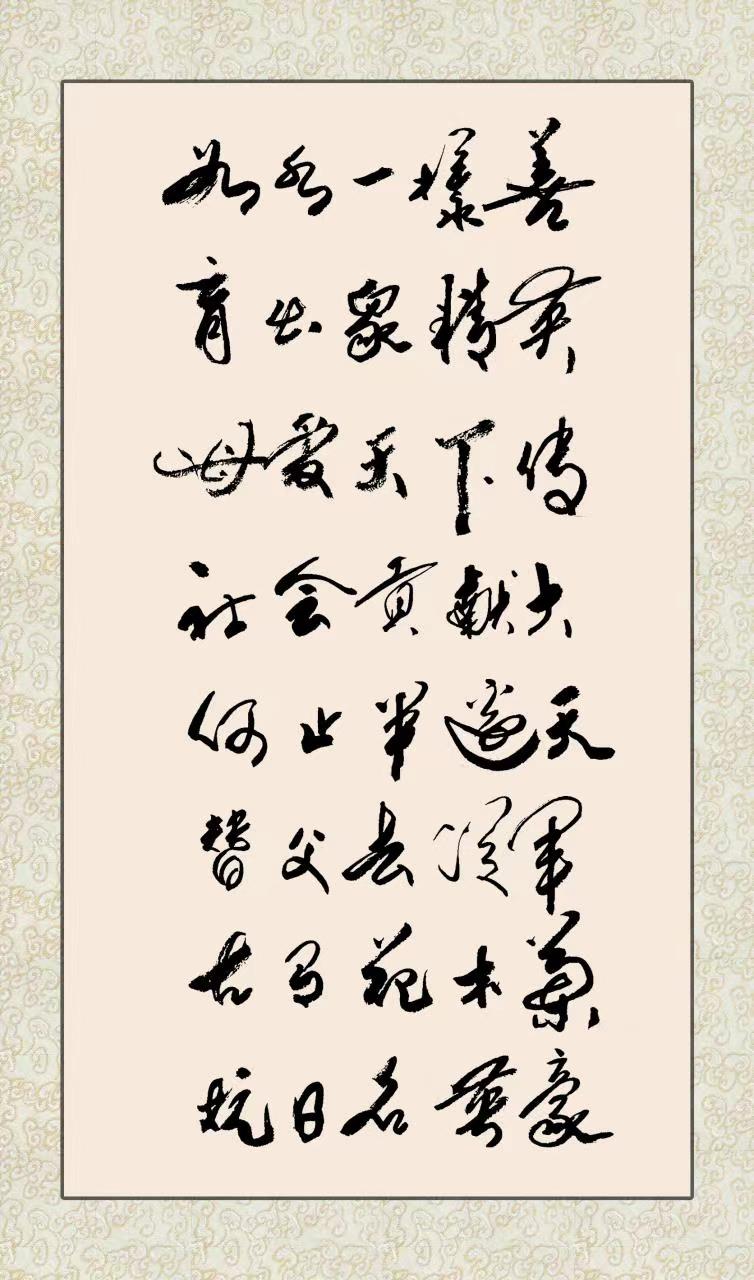 如水一樣善
育出眾精英
母爱天下傳
社会貢獻大
何止半邊天
替父去從軍
古有花木蘭
抗日名英豪